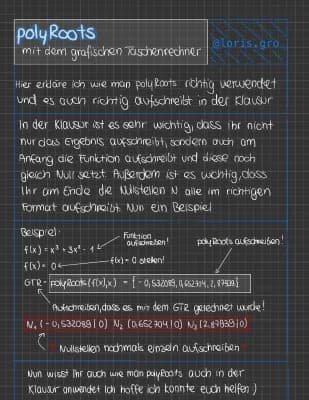 polyRoots
mit dem grafischen Taschenrechner
@loris.gro
Hier erkläre ich wie man polyRoots richtig verwendet
und es auch richtig aufschreibt in der Klausur
In der Klausur ist es sehr wichtig, dass ihr nicht
nur das Ergebnis aufschreibt, sondern auch am
Anfang die Funktion aufschreibt und diese noch
gleich Null setzt. Außerdem ist es wichtig, dass
Ihr am Ende die Nullstellen N alle im richtigen
Format aufschreibt. Nun ein Beispiel
Beispiel:
Funktion
aufschreiben!
polyRoots aufschreiben!
f(x) = x³ + 3x² - 1
f(x) = 0
f(x) = 0 stellen!
GTR = polyRoots(f(x),x) = {-0,532089; 0,652704; 2,87939}
Aufschreiben, dass es mit dem GTR gerechnet wurde!
N₁(-0,532089|0) N₂(0,652704|0) N₃(2,87939|0)
Nullstellen nochmals einzeln aufschreiben
Nun wisst ihr auch wie man polyRoots auch in der
Klausur anwendet. Ich hoffe ich konnte euch helfen :)